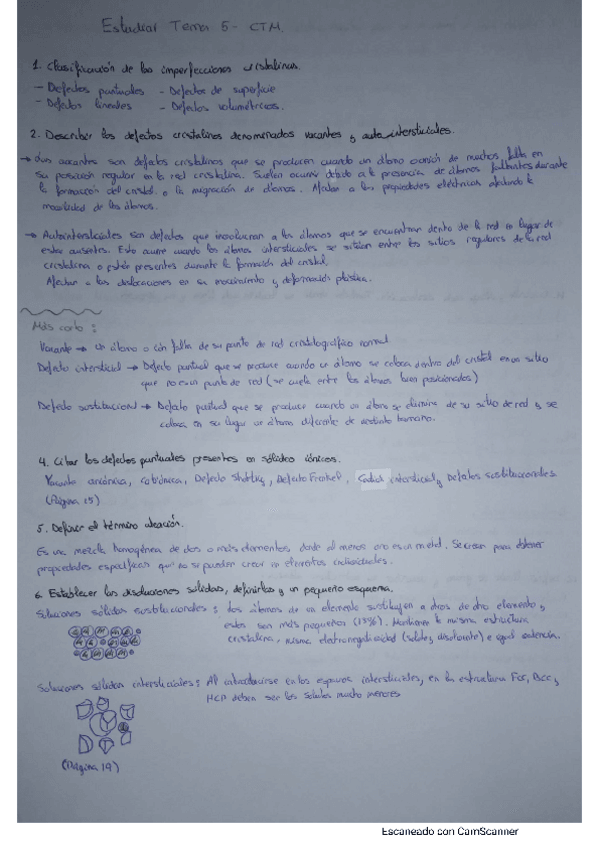 Estudiar Tema 5 - CTM.
1. Clasificación de las imperfecciones cristalinas.
- Defectos puntuales - Defectos de superficie
- Defectos lineales - Defectos volumétricos.
2. Describir los defectos cristalinos denominados vacantes y autointersticiales.
→ Las vacantes son defectos cristalinos que se producen cuando un átomo o unión de muchos, falta en
su posición regular en la red cristalina. Suelen ocurrir debido a la presencia de átomos faltantes durante
la formación del cristal o la migración de átomos. Afectan a las propiedades eléctricas afectando la
movilidad de los átomos.
→ Autointersticiales son defectos que involucran a los átomos que se encuentran dentro de la red en lugar de
estar ausentes. Esto ocurre cuando los átomos intersticiales se sitúan entre los sitios regulares de la red
cristalina o están presentes durante la formación del cristal.
Afectan a las dislocaciones en su movimiento y deformación plástica.
Más corto:
Vacante → un átomo o ión falta de su punto de red cristalográfico normal
Defecto intersticial → Defecto puntual que se produce cuando un átomo se coloca dentro del cristal en un sitio
que no es un punto de red (se cuela entre los átomos bien posicionados)
Defecto sustitucional → Defecto puntual que se produce cuando un átomo se elimina de su sitio de red y se
coloca en su lugar un átomo diferente de distinto tamaño.
4. Citar los defectos puntuales presentes en sólidos iónicos.
Vacante aniónica, catiónica, Defecto Shottky, Defecto Frenkel, Catión intersticial y Defectos sustitucionales
(Página 15)
5. Definir el término aleación.
Es una mezcla homogénea de dos o más elementos donde al menos uno es un metal. Se crean para obtener
propiedades específicas que no se pueden crear en elementos individuales.
6. Establecer las disoluciones sólidas, definirlas y un pequeño esquema.
Soluciones sólidas sustitucionales: los átomos de un elemento sustituyen a otros de otro elemento y
estos son más pequeños (15%). Mantienen la misma estructura
cristalina, misma electronegatividad (soluto y disolvente) e igual valencia.
Soluciones sólidas intersticiales: Al introducirse en los espacios intersticiales, en la estructura Fcc, Bcc y
HCP deben ser los solutos mucho menores
(Página 19)
Escaneado con CamScanner